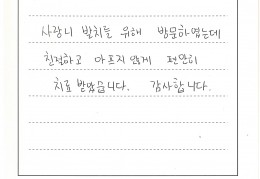 사랑니 발치를 위해 방문하였는데
친절하고 아프지 않게 편안히
치료 받았습니다. 감사합니다.